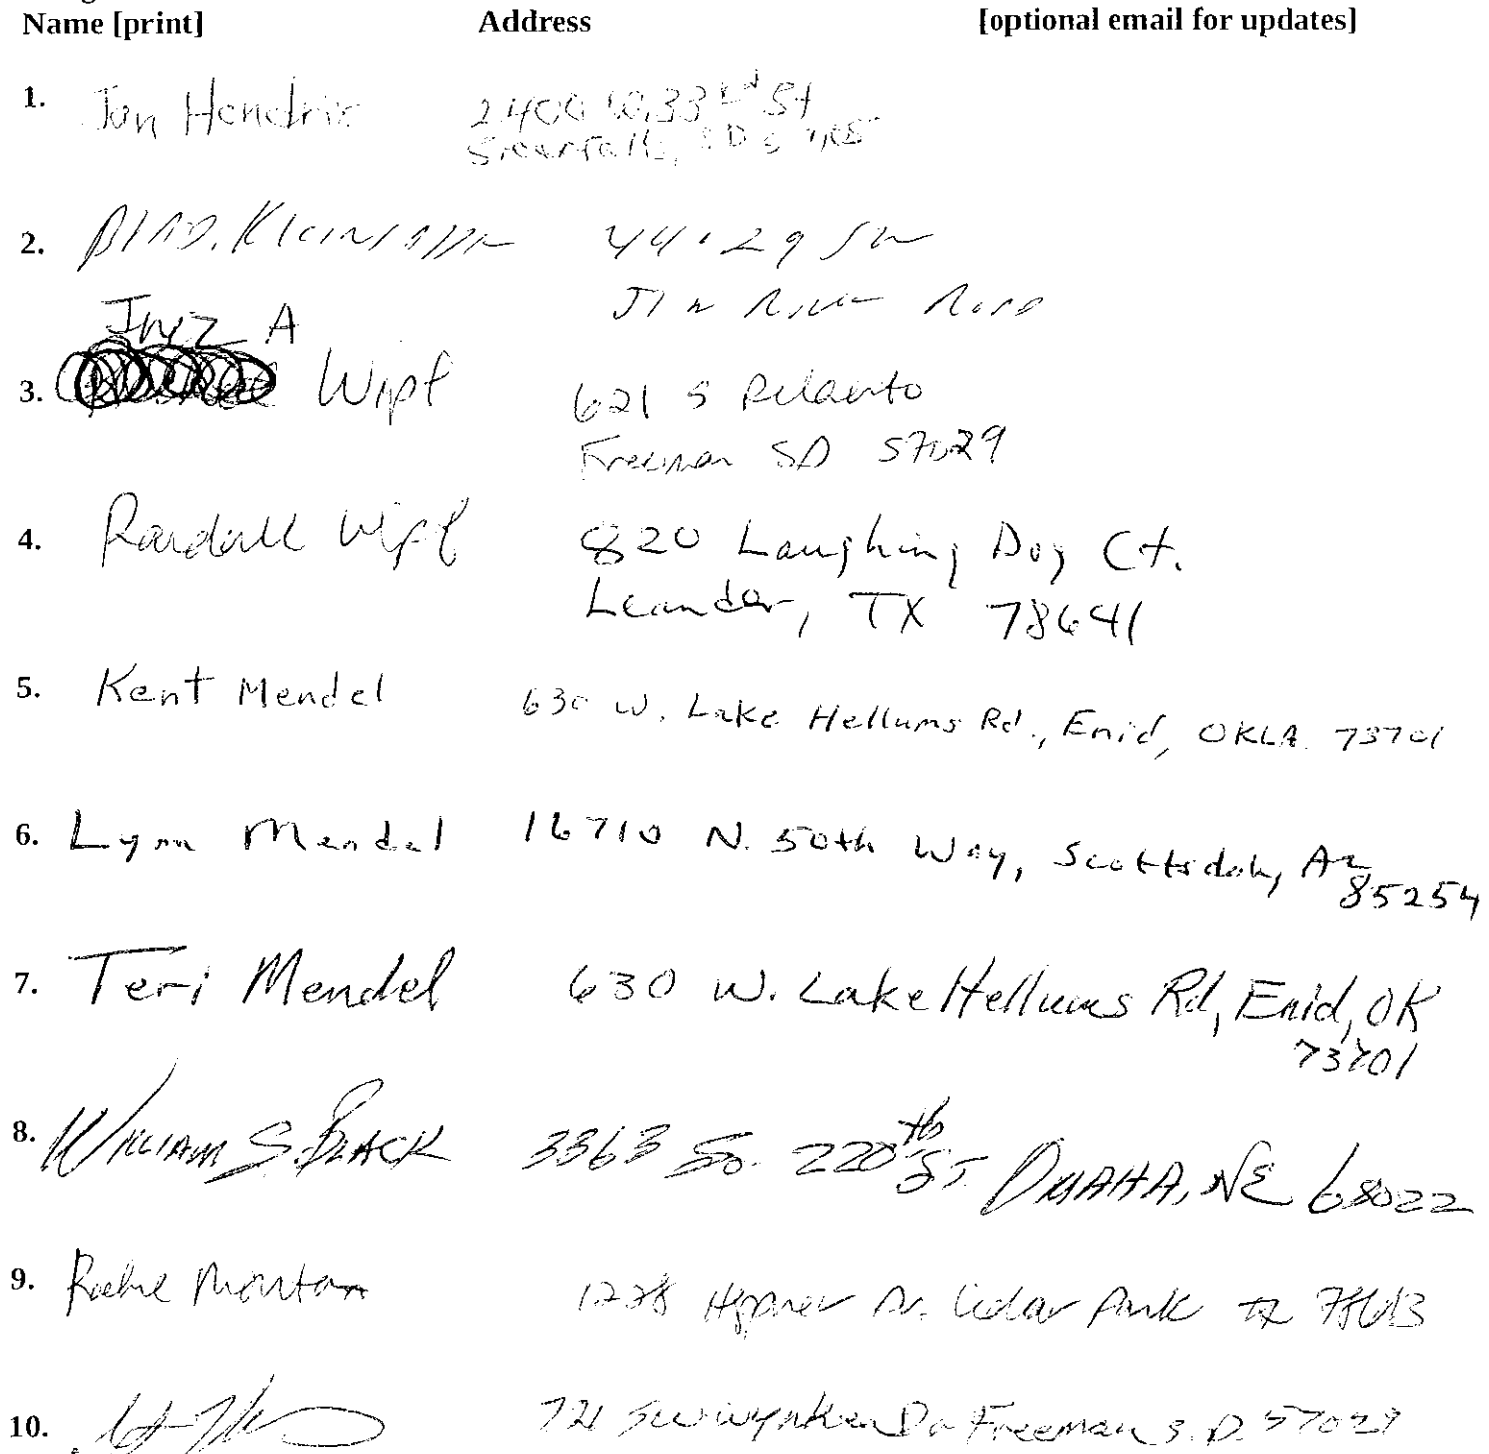 Name [print] Address [optional email for updates]
1. Jon Hendrix 2400 W. 33rd St
SD
2. Klein
River Road
Inez A
3. Wipf 621 S Relanto
Freeman SD 57029
4. Randall Wipf 820 Laughing Dog Ct.
Leander, TX 78641
5. Kent Mendel 630 W. Lake Hellums Rd., Enid, OKLA. 73701
6. Lynn Mendel 16710 N. 50th Way, Scottsdale, Az
85254
7. Teri Mendel 630 W. Lake Hellums Rd, Enid, OK
73701
8. William S. Black 3363 So. 220th St. Omaha, NE 68022
9. 1228 Dr. Cedar Park TX 78613
10. 721 Dr Freeman S.D. 57029